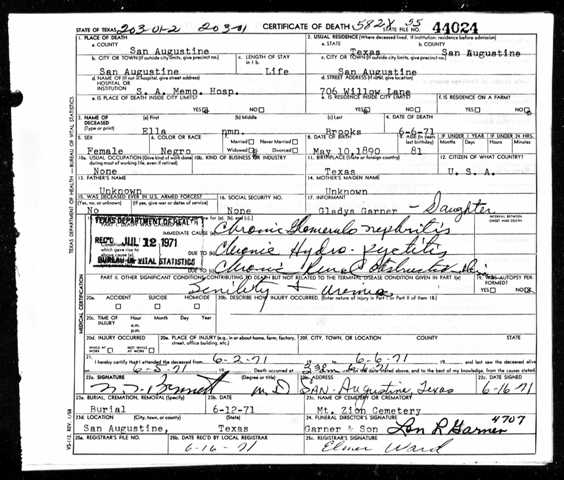 STATE OF TEXAS 203-01-2 203-01 CERTIFICATE OF DEATH 582X 55 STATE FILE NO. 44024
1. PLACE OF DEATH
2. USUAL RESIDENCE (Where deceased lived. If institution: residence before admission)
a. COUNTY San Augustine
a. STATE Texas
b. COUNTY San Augustine
b. CITY OR TOWN (If outside city limits, give precinct no.) San Augustine
c. LENGTH OF STAY in 1 b. Life
c. CITY OR TOWN (If outside city limits, give precinct no.) San Augustine
d. NAME OF (If not in hospital, give street address) HOSPITAL OR INSTITUTION S. A. Memo. Hosp.
d. STREET ADDRESS 706 Willow Lane
e. IS PLACE OF DEATH INSIDE CITY LIMITS? YES NO
e. IS RESIDENCE INSIDE CITY LIMITS? YES NO
f. IS RESIDENCE ON A FARM? YES NO
3. NAME OF DECEASED (Type or print) (a) First Ella (b) Middle nmn. (c) Last Brooks
4. DATE OF DEATH 6-6-71
5. SEX Female
6. COLOR OR RACE Negro
7. Married Never Married Widowed Divorced
8. DATE OF BIRTH May 10,1890
9. AGE (In years last birthday) 81
IF UNDER 1 YEAR Months Days
IF UNDER 24 HRS. Hours Min.
10a. USUAL OCCUPATION (Give kind of work done during most of working life, even if retired) None
10b. KIND OF BUSINESS OR INDUSTRY
11. BIRTHPLACE (State or foreign country) Texas
12. CITIZEN OF WHAT COUNTRY? U. S. A.
13. FATHER'S NAME Unknown
14. MOTHER'S MAIDEN NAME Unknown
15. WAS DECEASED EVER IN U.S. ARMED FORCES? (Yes, no, or unknown) (If yes, give war or dates of service) No
16. SOCIAL SECURITY NO. None
17. INFORMANT Gladys Garner - Daughter
TEXAS DEPARTMENT OF HEALTH
REC'D JUL 12 1971
BUREAU OF VITAL STATISTICS
INTERVAL BETWEEN ONSET AND DEATH
IMMEDIATE CAUSE (a) Chronic Glomerulo nephritis
DUE TO Chronic Hydro-
DUE TO Chronic Renal
PART II. OTHER SIGNIFICANT CONDITIONS CONTRIBUTING TO DEATH BUT NOT RELATED TO THE TERMINAL DISEASE CONDITION GIVEN IN PART I (a)
Senility + Uremia
19. WAS AUTOPSY PERFORMED? YES NO
20a. ACCIDENT SUICIDE HOMICIDE
20b. DESCRIBE HOW INJURY OCCURRED. (Enter nature of injury in Part I or Part II of item 18)
20c. TIME OF INJURY Hour Month Day Year a.m. p.m.
20d. INJURY OCCURRED WHILE AT WORK NOT WHILE AT WORK
20e. PLACE OF INJURY (e.g. in or about home, farm, factory, street, office building, etc.)
20f. CITY, TOWN, OR LOCATION COUNTY STATE
21. I hereby certify that I attended the deceased from 6-2-71 to 6-6-71 and last saw the deceased alive
on 6-5-71 Death occurred at m. on the date stated above, and to the best of my knowledge, from the causes stated.
22a. SIGNATURE Bennett (Degree or title) M. D
22b. ADDRESS San Augustine, Texas
22c. DATE SIGNED 6-16-71
23a. BURIAL, CREMATION, REMOVAL (Specify) Burial
23b. DATE 6-12-71
23c. NAME OF CEMETERY OR CREMATORY Mt. Zion Cemetery
23d. LOCATION (City, town, or county) (State) San Augustine, Texas
24. FUNERAL DIRECTOR'S SIGNATURE Garner & Son Lon R Garner 4707
25a. REGISTRAR'S FILE NO.
25b. DATE REC'D BY LOCAL REGISTRAR 6-16-71
25c. REGISTRAR'S SIGNATURE Elmer Ward
TEXAS DEPARTMENT OF HEALTH — BUREAU OF VITAL STATISTICS
MEDICAL CERTIFICATION